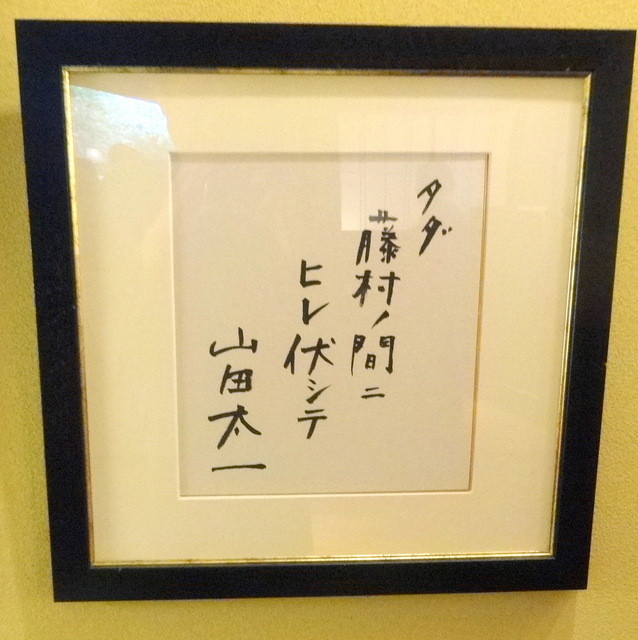 タダ
藤村ノ間ニ
ヒレ伏シテ
山田太一